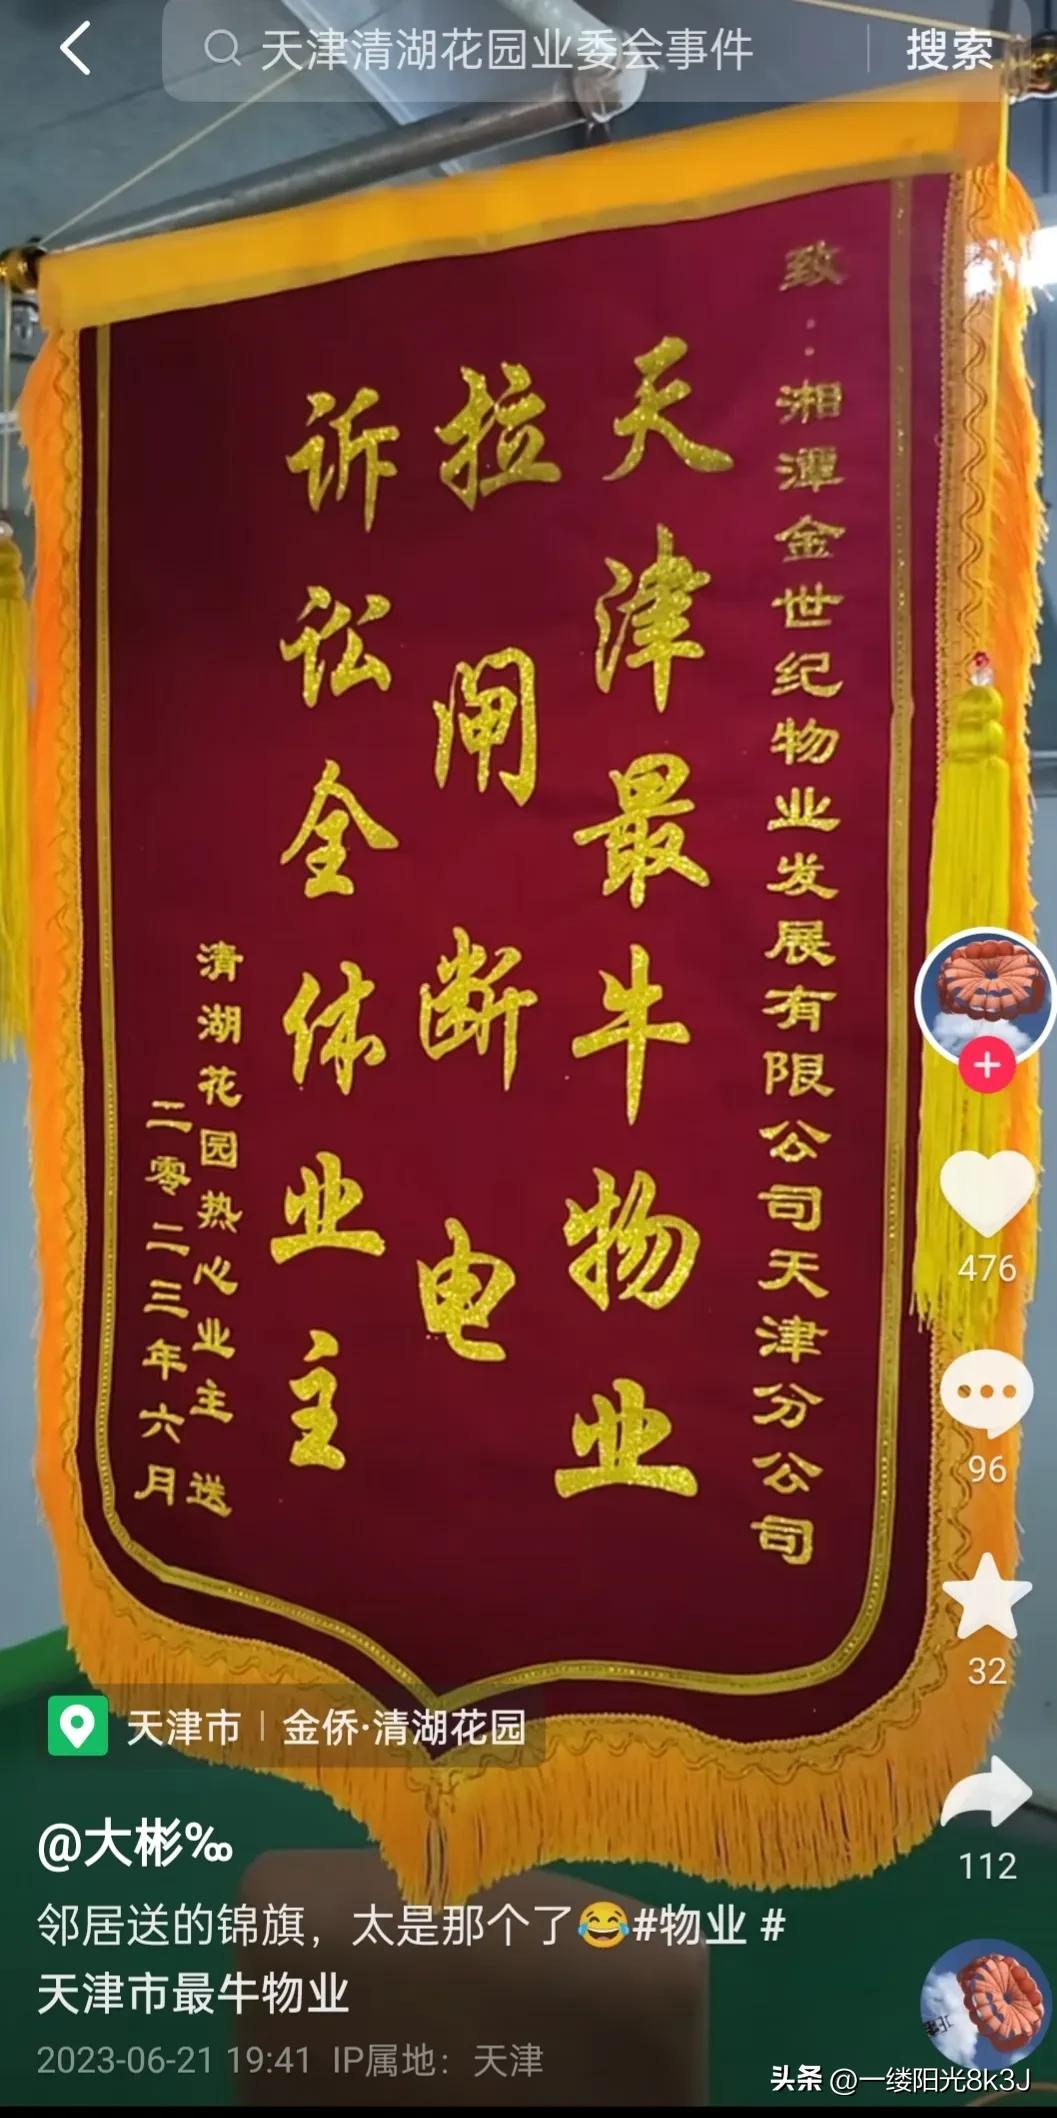 天津清湖花园业委会事件
搜索
致：湘潭金世纪物业发展有限公司天津分公司
天津最牛物业
拉闸断电
诉讼全体业主
清湖花园热心业主 送
二零二三年六月
476
96
32
112
天津市 | 金侨·清湖花园
@大彬‰
邻居送的锦旗，太是那个了😂#物业 #
天津市最牛物业
2023-06-21 19:41 IP属地：天津
头条 @一缕阳光8k3J